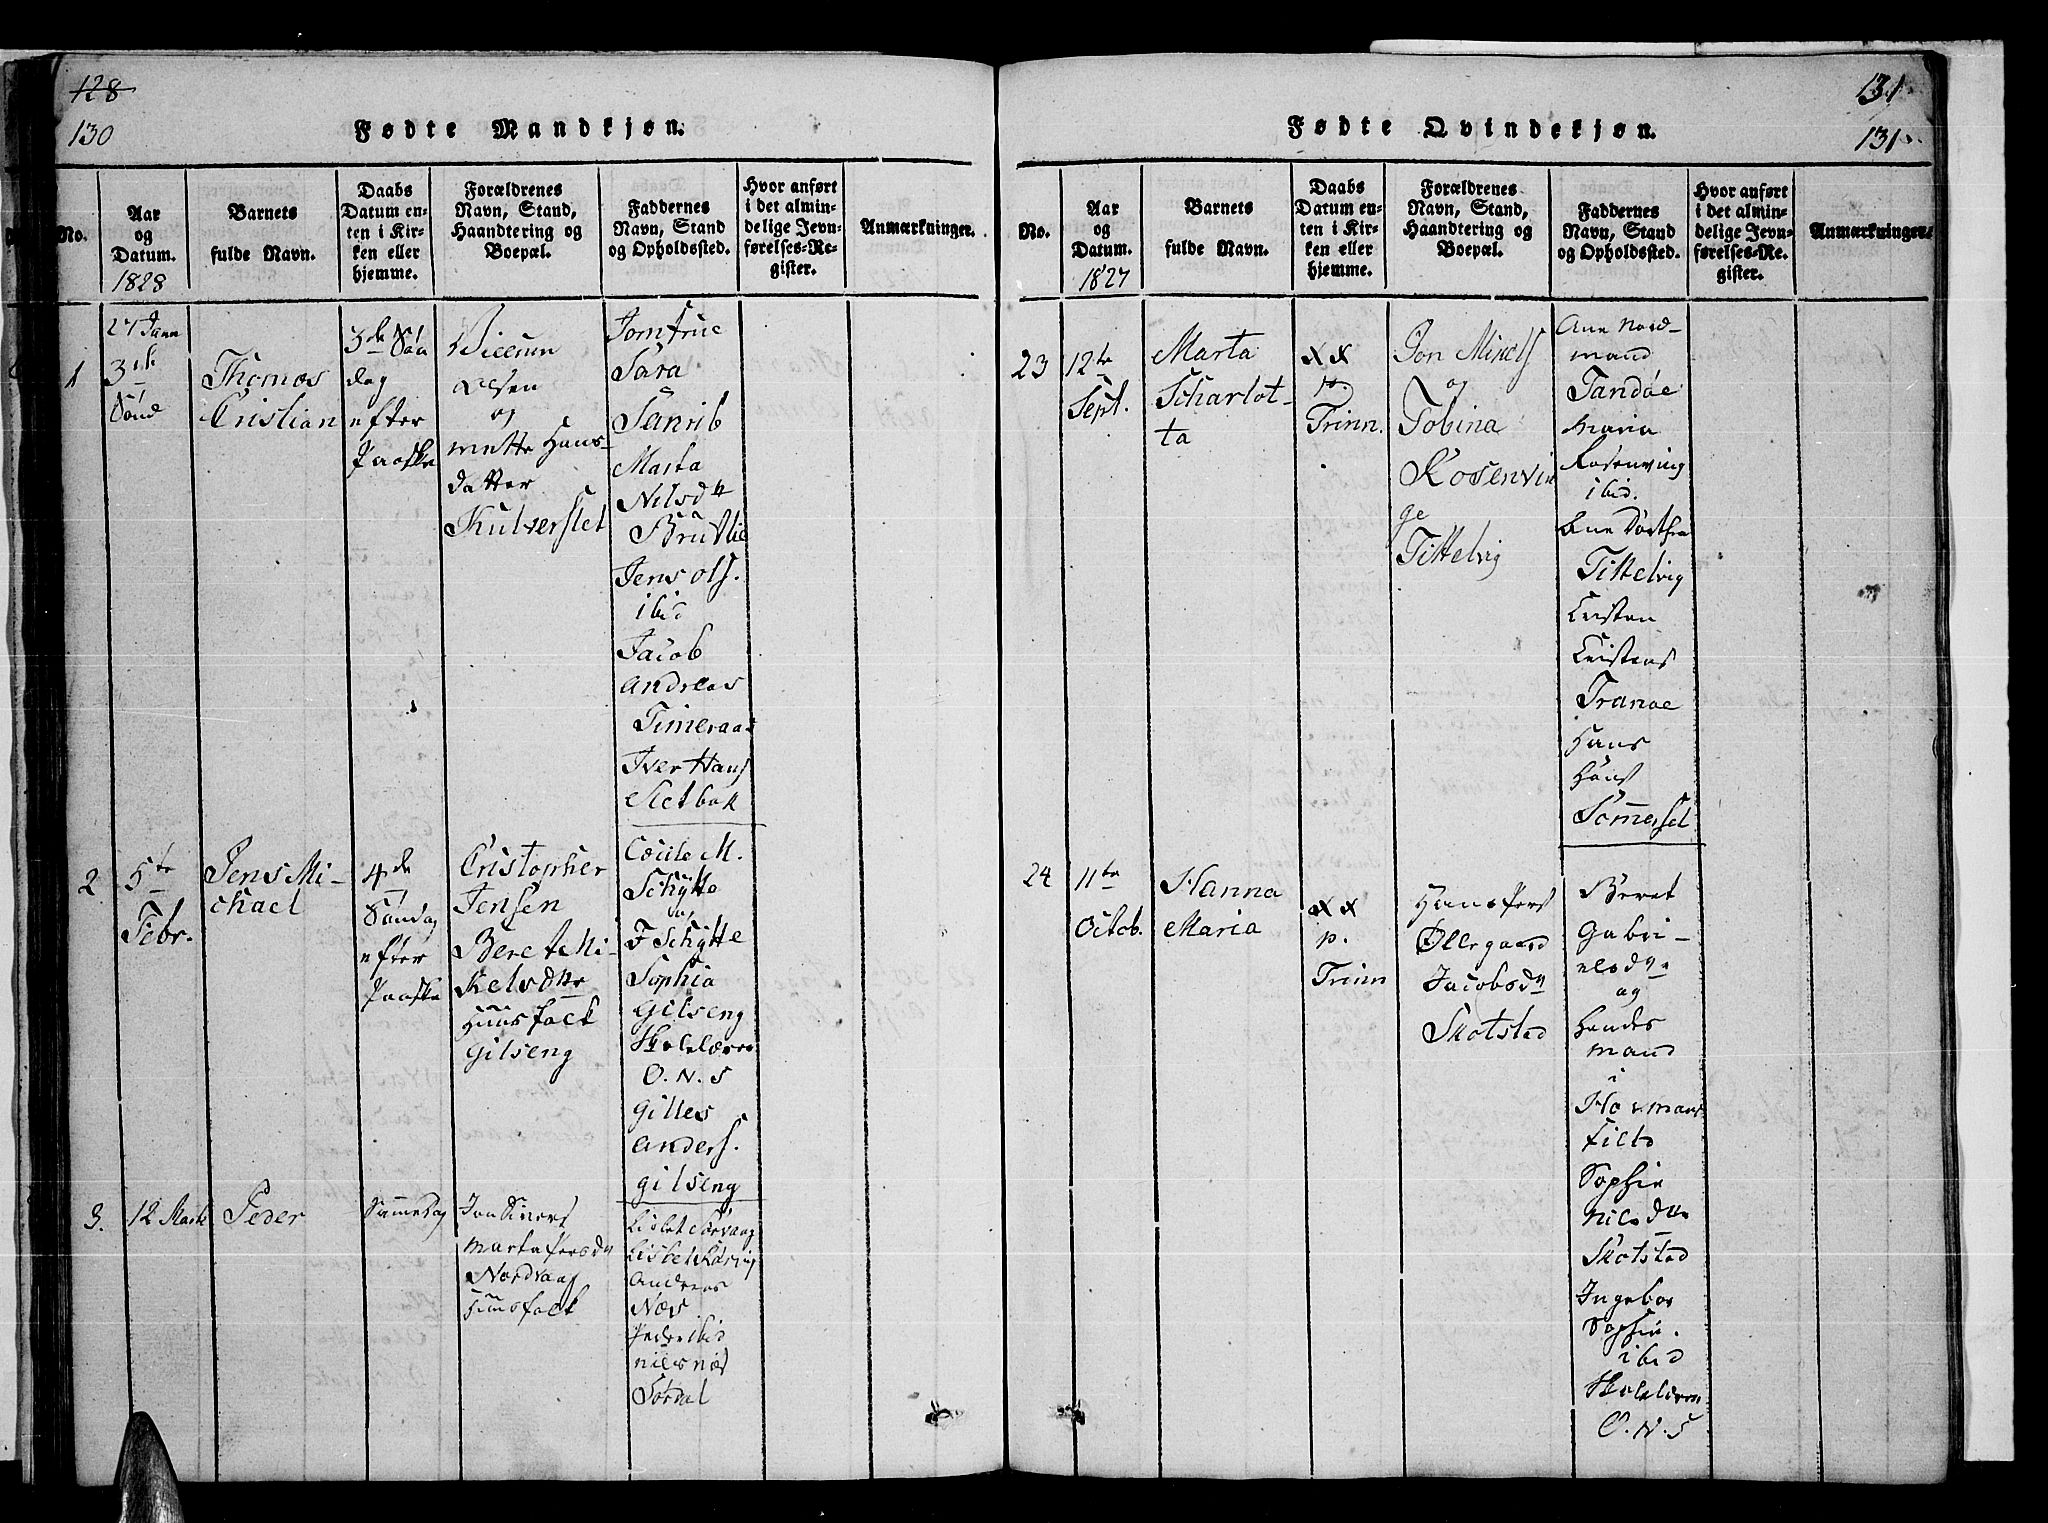 128
130
Fødte Mandkjøn.
No.
Aar
og
Datum.
1828
Barnets
fulde Navn.
Daabs
Datum en-
ten i Kir-
ken eller
hjemme.
Forældrenes
Navn, Stand,
Haandtering og
Boepæl.
Faddernes
Navn, Stand
og Opholdssted.
Hvor anført
i det almin-
delige Jevn-
førelses-Re-
gister.
Anmærkninger.
1
27 Jann
3de
Sönd
Thomas
Cristian
3de Søn
dag
efter
Paaske
Willum
Olsen
og
Mette Hans-
datter
Kulverslet
Jomfrue
Sara
Marta
Nilsd
Jens Ols.
ibid
Jacob
Andreas
Timeraas
Iver Hans
Sletbak
2
5te
Febr.
Jens Mi-
chael
4de
Søndag
efter
Paaske
Cristopher
Jensen
Beret Mi-
kelsdttr
Huusfolk
Gilseng
Cecile M.
Schÿtte
og
F Schÿtte
Sophia
Gilseng
Skolelærer
O. N. S
Gilles
Anders.
Gilseng
3.
12 Marti
Peder
Samedag
Jon Sivers
Marta Persd
Nordvaag
Huusfolk
Lisbet
Andreas
Næs
Peder ibid
Nils Næs
Sördal
131
131
Fødte Qvindekjøn.
No.
Aar
og
Datum.
1827
Barnets
fulde Navn.
Daabs
Datum en-
ten i Kir-
ken eller
hjemme.
Forældrenes
Navn, Stand,
Haandtering og
Boepæl.
Faddernes
Navn, Stand
og Opholdssted.
Hvor anført
i det almin-
delige Jevn-
førelses-Re-
gister.
Anmærkninger.
23
12te
Sept.
Marta
Scharlot-
ta
XX
p.
Trinn.
Jon Mikels
og
Tobina
Rosenvin
ge
Tittelvig
Ane Nord-
mand
Tandöe
Maria
Rosenving
ibid.
Ane Dorthea
Tittelvig
Cristen
Cristens
Tranöe
Hans
Hans
Sommerset
24
11te
Octob.
Hanna
Maria
XX
p.
Trinn
Hans Pers
Ollegaard
Jacobsd
Skotsted
Beret
Gabri-
elsd
og
Hendes
mand
i
Hormans
Sophie
Nilsd
Skotsted
Ingebor
Sophie.
ibid
Skolelærer
O. N. S